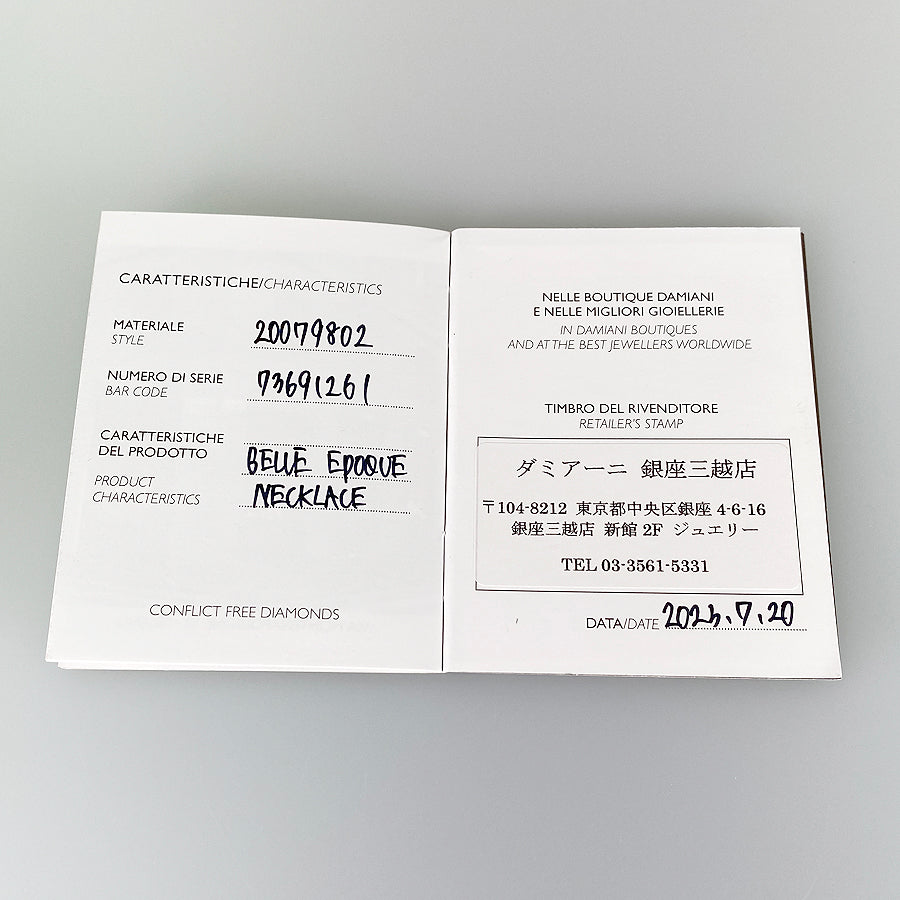 CARATTERISTICHE/CHARACTERISTICS
MATERIALE
STYLE
20079802
NUMERO DI SERIE
BAR CODE
73691261
CARATTERISTICHE
DEL PRODOTTO
PRODUCT
CHARACTERISTICS
BELLE EPOQUE
NECKLACE
CONFLICT FREE DIAMONDS
NELLE BOUTIQUE DAMIANI
E NELLE MIGLIORI GIOIELLERIE
IN DAMIANI BOUTIQUES
AND AT THE BEST JEWELLERS WORLDWIDE
TIMBRO DEL RIVENDITORE
RETAILER'S STAMP
ダミアーニ 銀座三越店
〒104-8212 東京都中央区銀座 4-6-16
銀座三越店 新館 2F ジュエリー
TEL 03-3561-5331
DATA/DATE